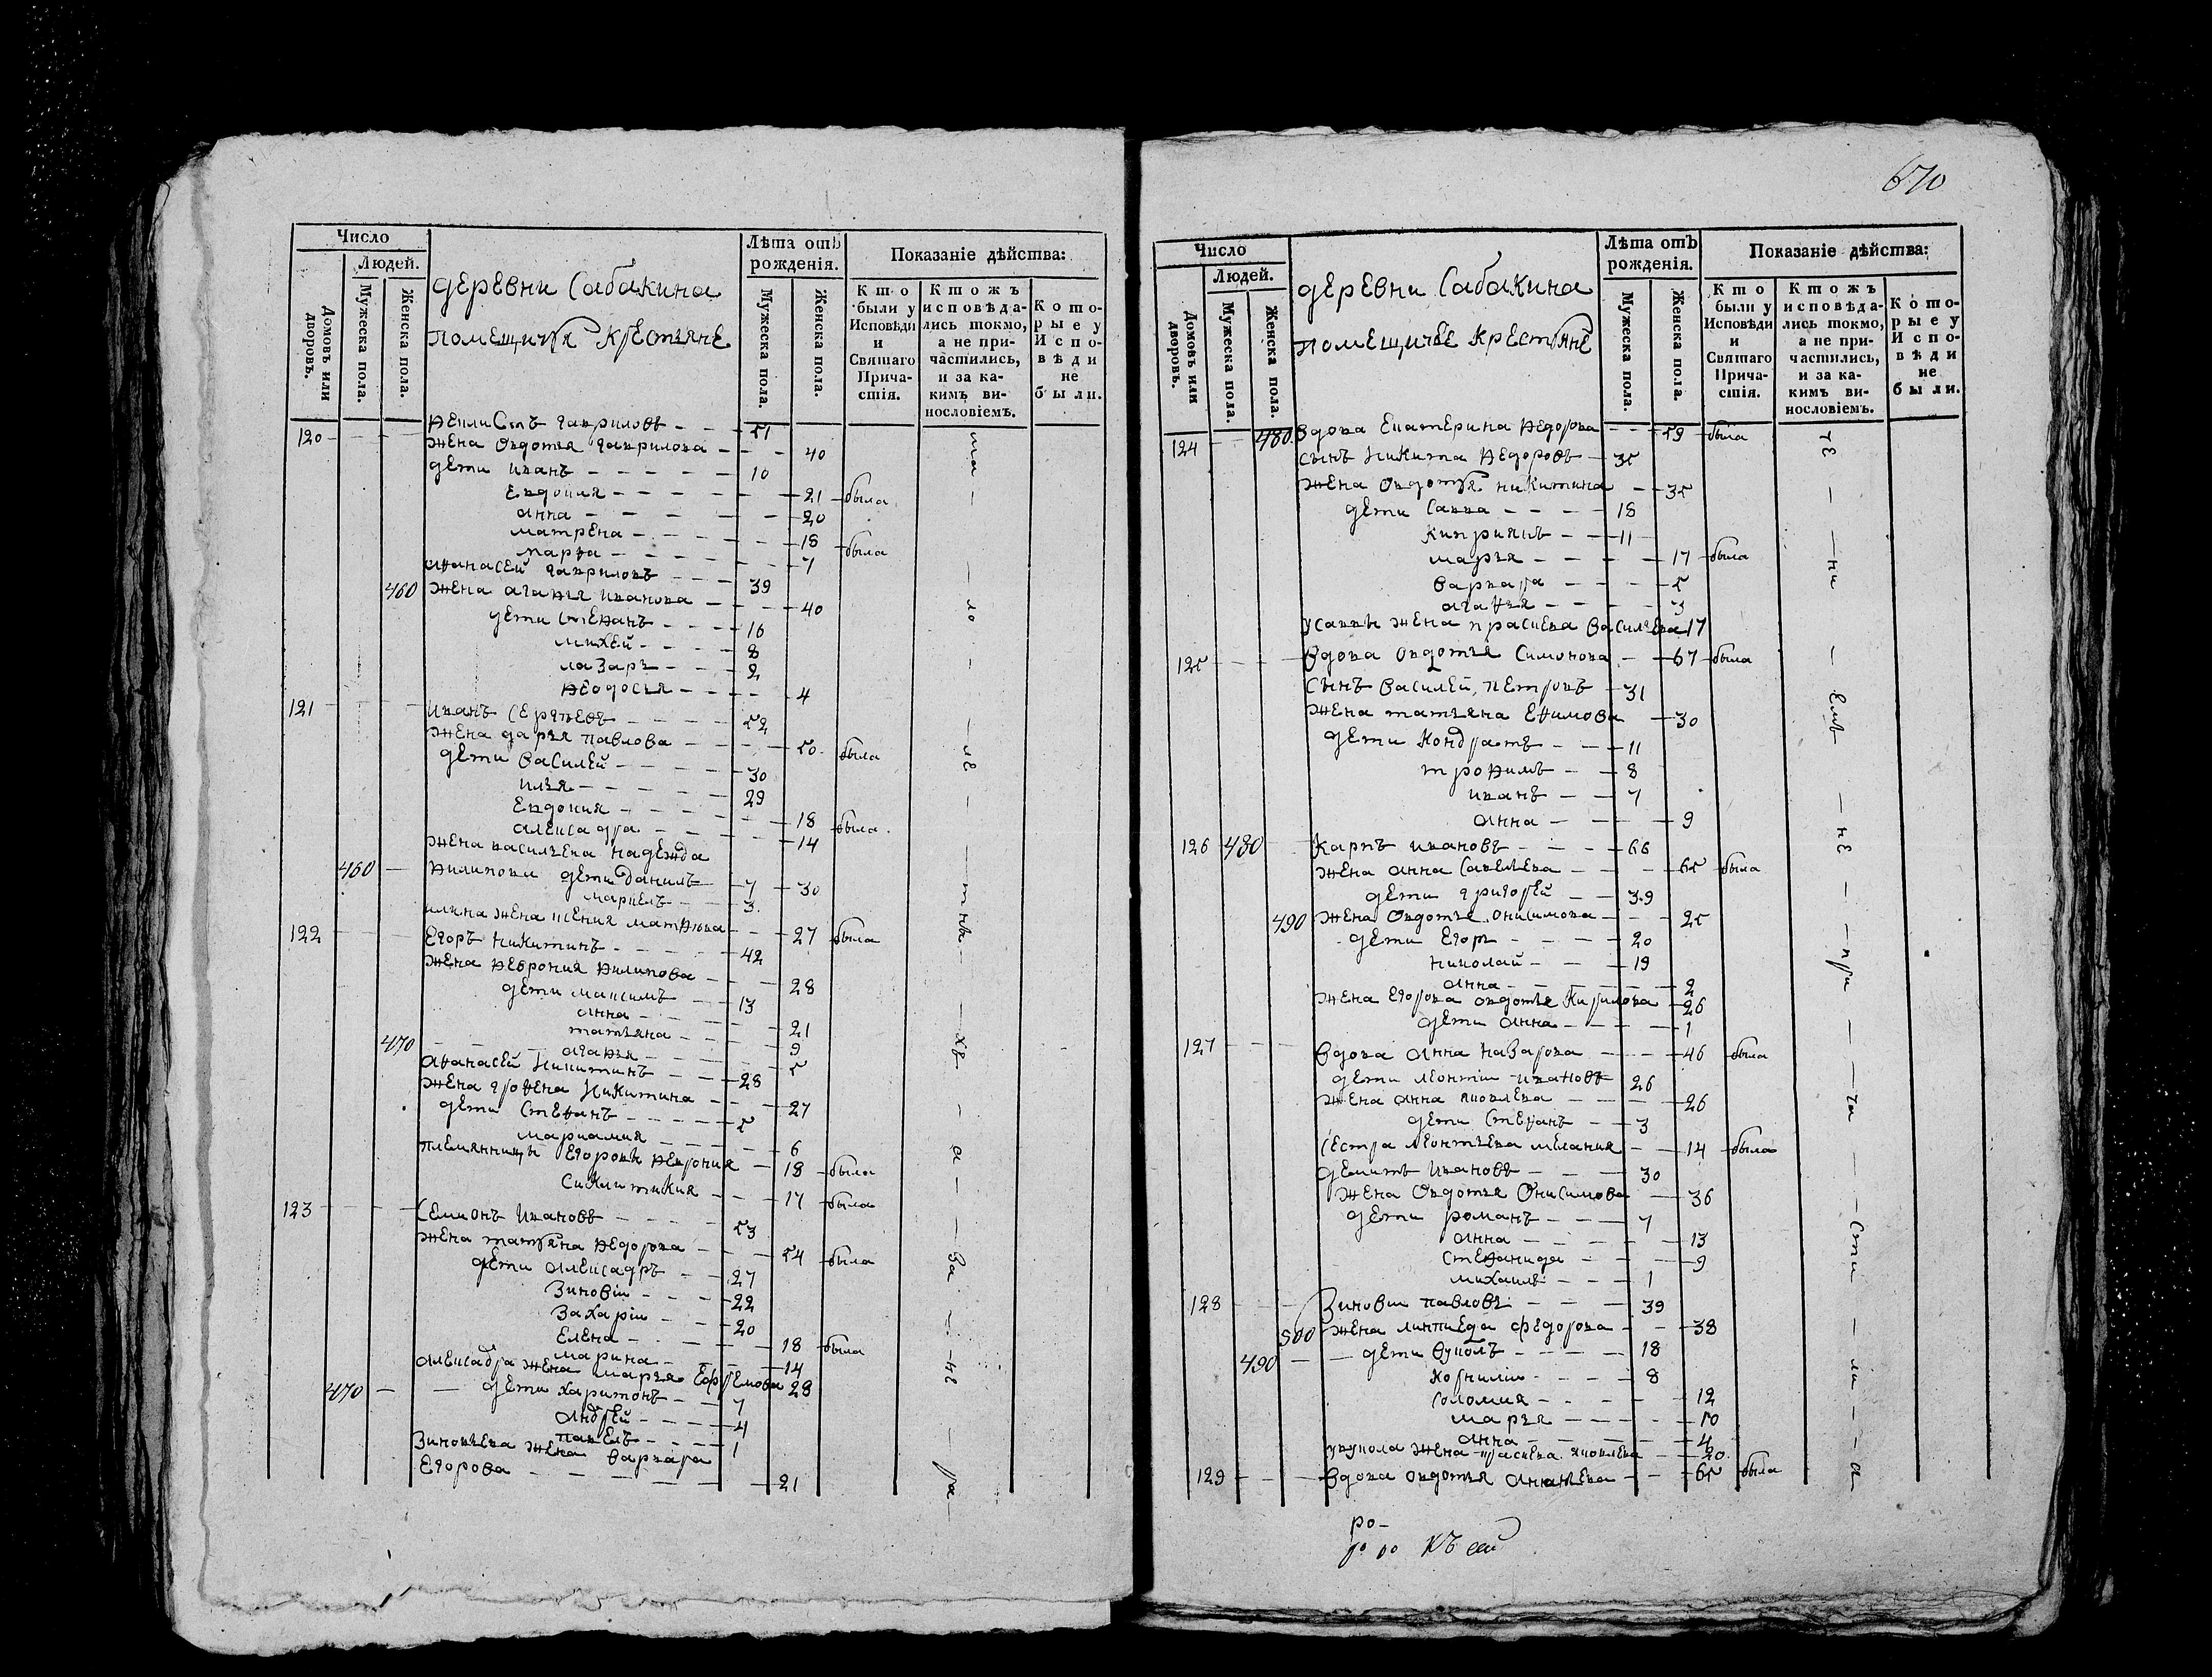 Число
Людей.
Домовъ или дворовъ.
Мужеска пола.
Женска пола.
деревни Сабакина
помещичьи крестьяне
Лѣта отъ рожденія.
Мужеска пола.
Женска пола.
Показаніе дѣйства:
Кто были у Исповѣди и Святаго Причастія.
Ктожъ исповѣдались токмо, а не причастились, и за какимъ винословіемъ.
Которые у Исповѣди не были.
120 Феклистъ Гавриловъ 51
жена Овдотья Гаврилова 40
дети Иванъ 10
Евдокия 21 была
Анна 20
матрена 18 была
марфа 7
Афанасей Гавриловъ 39
460 жена агафья Иванова 40
дети Стефанъ 16
михей 8
лазарь 2
феодосья 4
121 Иванъ Сергѣевъ 52
жена дарья павлова 50 была
дети Василей 30
илья 29
Евдокия 18 была
алексадра 14
жена васильева надежда
460 филипова дети данилъ 7 30
маркелъ 3
ильина жена ксения матфеева 27 была
122 Егоръ Никитинъ 42
жена феврония филипова 28
дети максимъ 13
анна 21
татьяна 9
470 агафья 5
Афанасей Никитинъ 28
жена Никитина 27
дети Стефанъ 5
мариамия 6
племянницы Егоровы феврония 18 была
Сиклитикия 17 была
123 Семионъ Ивановъ 53
жена татьяна федорова 54 была
дети алексадръ 27
Зиновіи 22
Захаріи 20
Елена 18 была
марина 14
алексадра жена марья Ефремова 28
470 дети харитонъ 7
андрей 4
павелъ 1
Зиновьева жена варвара
Егорова 21
670
Число
Людей.
Домовъ или дворовъ.
Мужеска пола.
Женска пола.
деревни Сабакина
помещичье крестьяне
Лѣта отъ рожденія.
Мужеска пола.
Женска пола.
Показаніе дѣйства:
Кто были у Исповѣди и Святаго Причастія.
Ктожъ исповѣдались токмо, а не причастились, и за какимъ винословіемъ.
Которые у Исповѣди не были.
124 480 Вдова Екатерина федорова 59 была
сынъ Никита федоровъ 35
жена Овдотья никитина 35
дети Савва 18
киприянъ 11
марья 17 была
варвара 5
агафья 3
у саввы жена праскева Васильева 17
125 Вдова Овдотья Симонова 67 была
Сынъ Василей петровъ 31
жена татьяна Ефимова 30
дети Кондратъ 11
трофимъ 8
иванъ 7
анна 9
126 480 Карпъ ивановъ 66
жена анна Савельева 65 была
дети григорей 39
490 жена Овдотья онисимова 25
дети Егоръ 20
николай 19
анна 2
жена Егорова овдотья Кирилова 26
дети анна 1
127 Вдова анна назарова 46 была
дети леонтіи ивановъ 26
жена анна яковлева 26
дети Стефанъ 3
Сестра леонтьева мелания 14 была
Ивановъ 30
жена Овдотья Онисимова 36
дети романъ 7
анна 13
стефанида 9
михаилъ 1
128 Зиновіи павловъ 39
500 жена федорова 38
490 дети вуколъ 18
корниліи 8
соломия 12
марья 10
анна 4
увукола жена праскева яковлева 20
129 Вдова овдотья ананьева 65 была